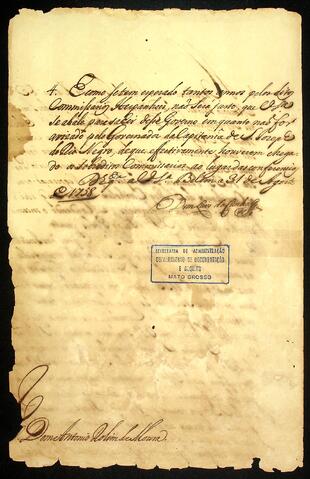 4. E como se tem esperado tantos annos pelos ditos
Commissarios Hespanhoes, naõ será justo, que V. S.ª
se abale para sahir desse Governo em quanto naõ for
avizado pelo Governador da Capitania de S. Joze
do Rio Negro, de que effectivamente houverem chega-
do os sobreditos Commissarios ao lugar das conferencias
D.s g.e a V. S.ª Belem a 31 de Agosto
de 1758
SECRETARIA DE ADMINISTRAÇÃO
DEPARTAMENTO DE DOCUMENTAÇÃO
E ARQUIVO
MATO GROSSO
Dom Antonio Rolim de Moura